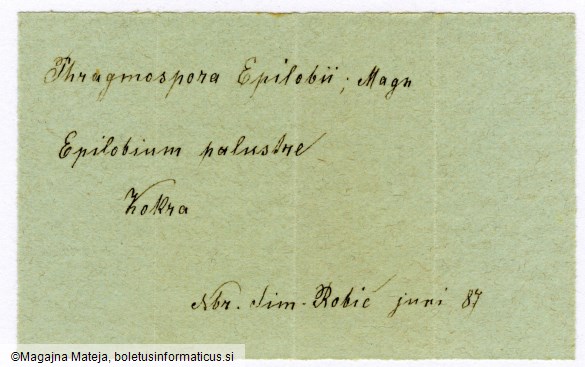 Phragmospora Epilobii; Magn
Epilobium palustre
Kokra
Nbr. Sim. Robič juni 87
©Magajna Mateja, boletusinformaticus.si